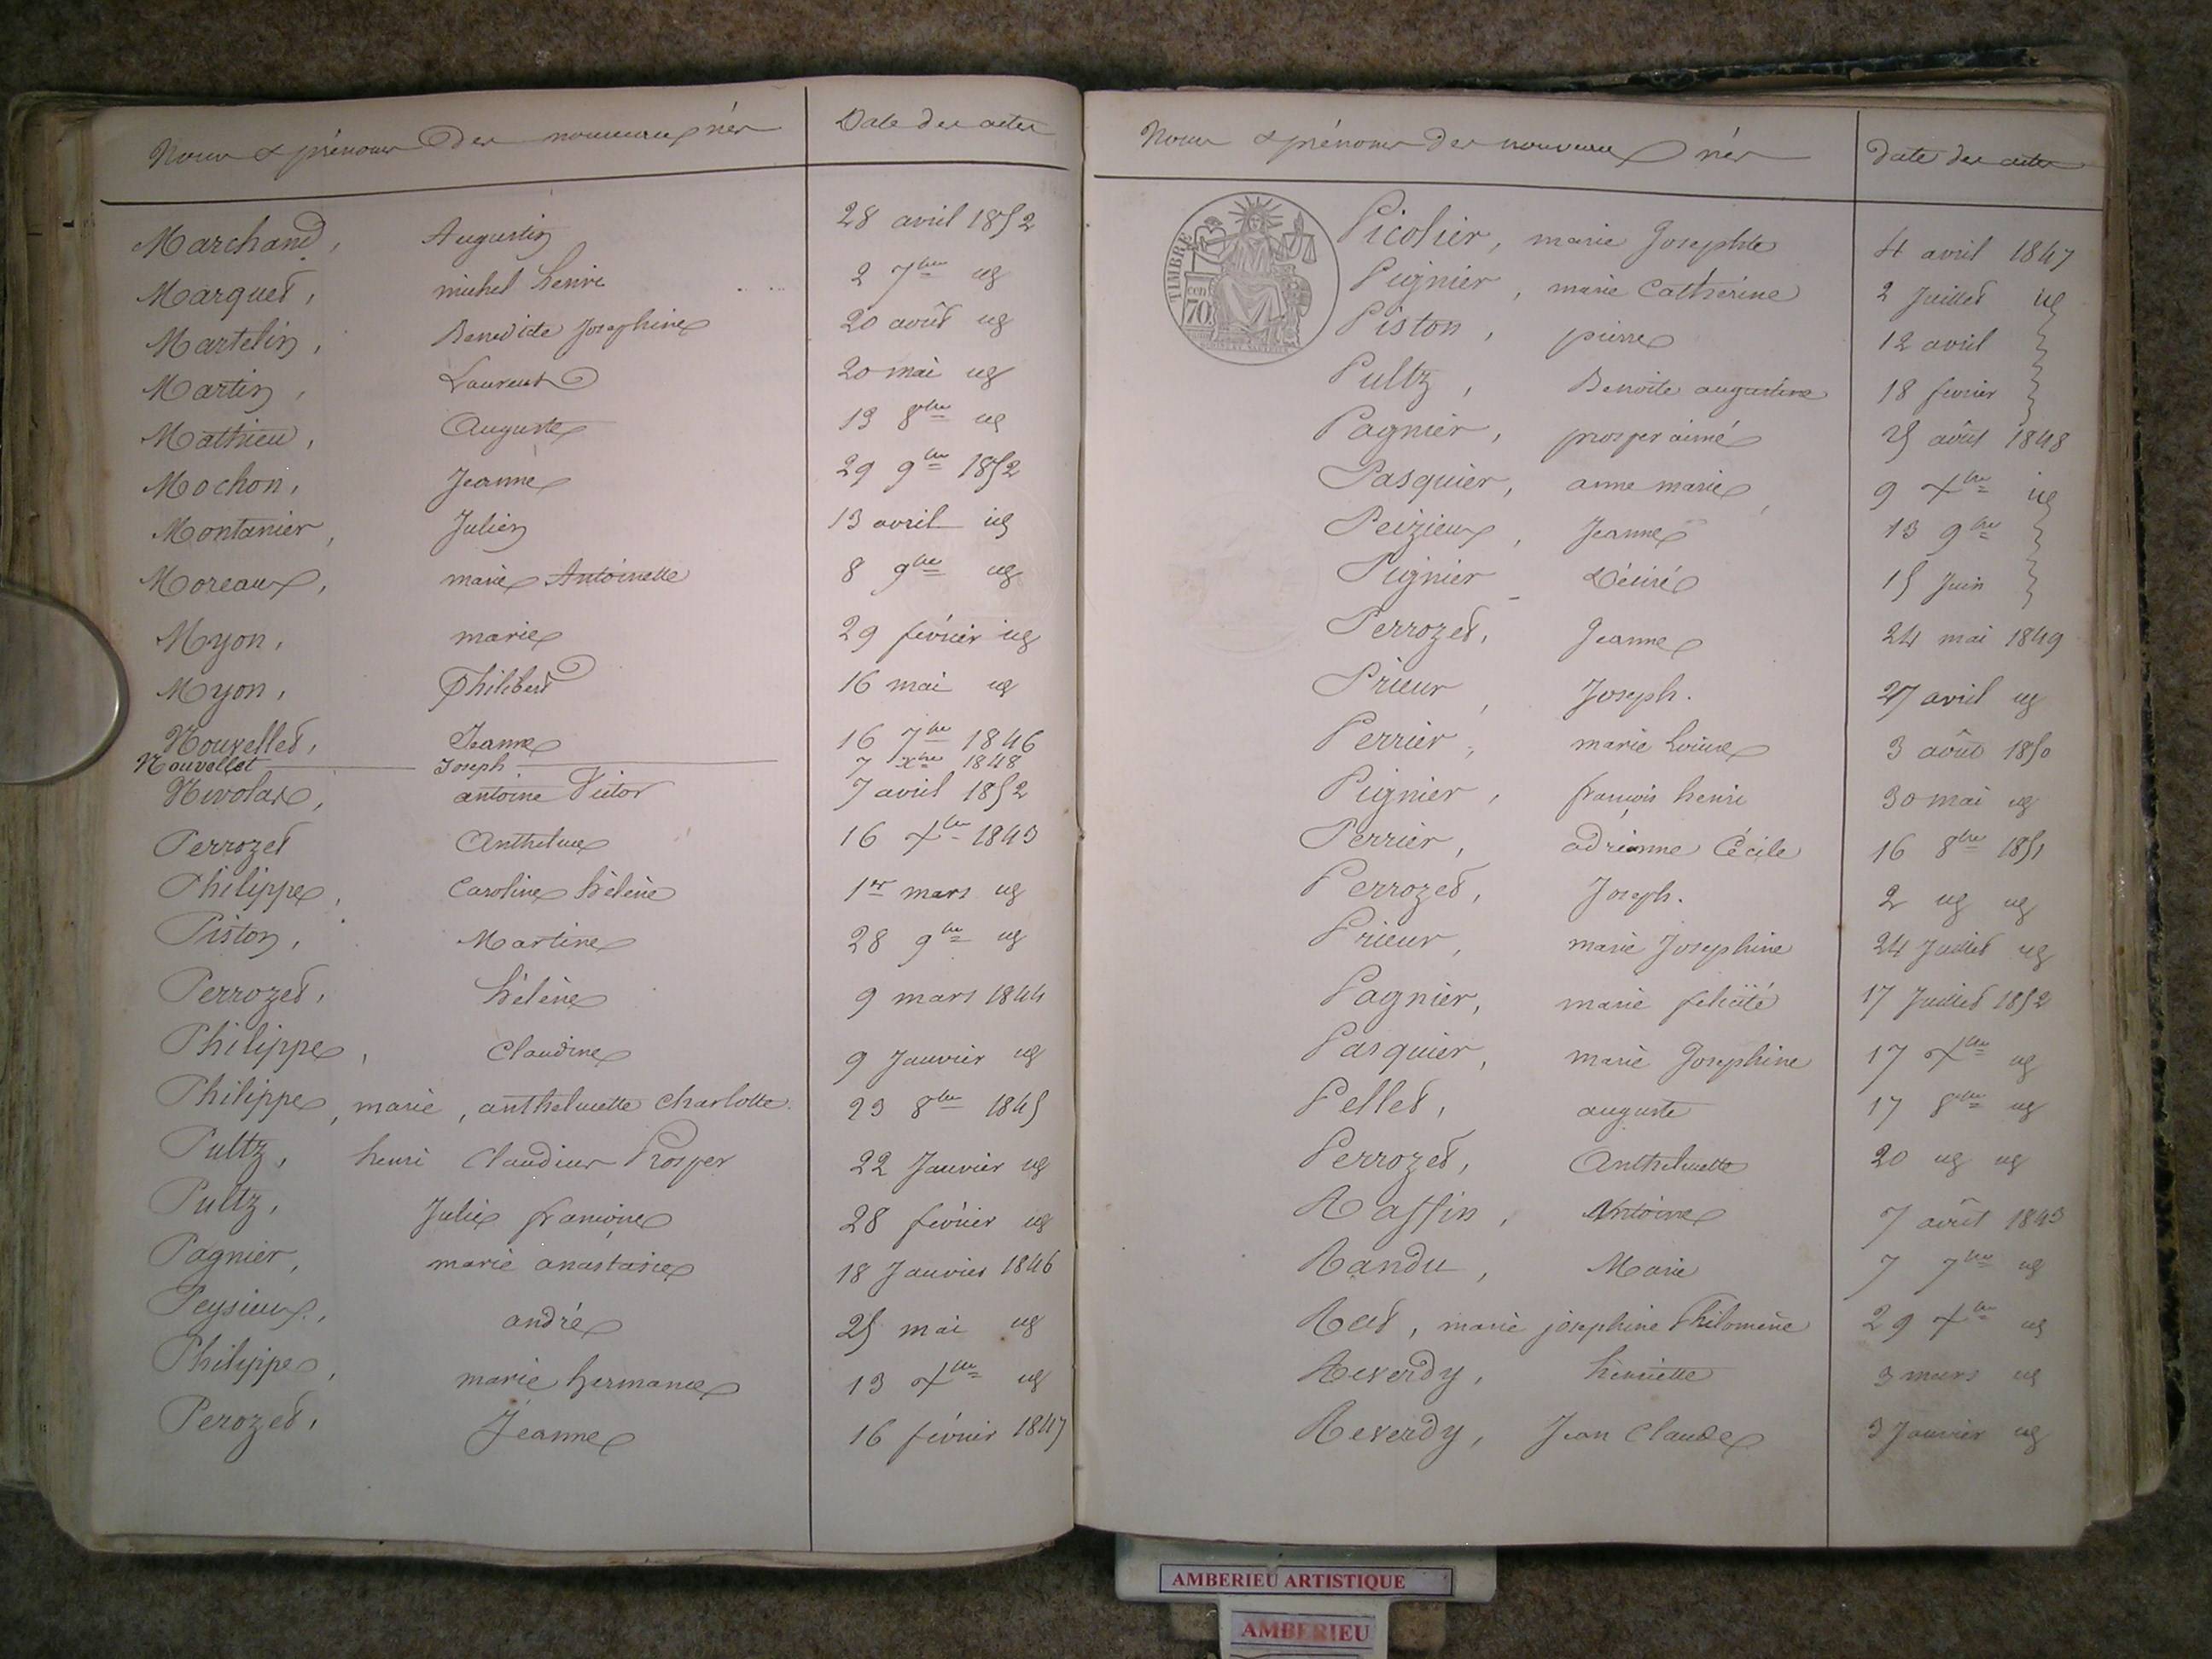 Noms & prénoms des nouveaux nés Date des actes
Marchand, Augustin 28 avril 1852
Marquet, michel henri 2 7bre id
Martelin, Benedicte Josephine 20 août id
Martin, Laurent 20 mai id
Mathieu, Auguste 13 8bre id
Mochon, Jeanne 29 9bre 1852
Montanier, Julien 13 avril id
Moreaux, marie Antoinette 8 9bre id
Myon, marie 29 février id
Myon, Philibert 16 mai id
Nouvellet, Jeanne 16 7bre 1846
Nouvellet Joseph 7 xbre 1848
Nivolas, antoine Victor 7 avril 1852
Perrozet Anthelme 16 Xbre 1843
Philippe, Caroline hélène 1er mars id
Piston, Martine 28 9bre id
Perrozet, hélène 9 mars 1844
Philippe, Claudine 9 Janvier id
Philippe, marie, anthelmette Charlotte 23 8bre 1845
Pultz, henri Claudius Prosper 22 Janvier id
Pultz, Julie françoise 28 février id
Pagnier, marie anastasie 18 Janvier 1846
Peysieux, andré 25 mai id
Philippe, marie hermance 13 Xbre id
Perozet, Jeanne 16 février 1847
Noms & prénoms des nouveaux nés Date des actes
TIMBRE
70 cen
Picolier, marie Josephte 4 avril 1847
Pignier, marie Catherine 2 Juillet id
Piston, pierre 12 avril }
Pultz, Benoite augustine 18 fevrier }
Pagnier, prosper aimé 25 août 1848
Pasquier, anne marie 9 Xbre id
Peizieux, Jeanne 13 9bre }
Pignier Désiré 15 Juin }
Perrozet, Jeanne 24 mai 1849
Prieur, Joseph. 27 avril id
Perrier, marie Louise 3 août 1850
Pignier, françois henri 30 mai id
Perrier, adrienne Cécile 16 8bre 1851
Perrozet, Joseph. 2 id id
Prieur, marie Josephine 24 Juillet id
Pagnier, marie felicité 17 Juillet 1852
Pasquier, marie Josephine 17 Xbre id
Pellet, auguste 17 8bre id
Perrozet, Anthelmette 20 id id
Raffin, Antoine 7 août 1843
Randu, Marie 7 7bre id
marie josephine Philomène 29 Xbre id
Reverdy, henriette 3 mars id
Reverdy, Jean Claude 3 Janvier id
AMBERIEU ARTISTIQUE
AMBERIEU